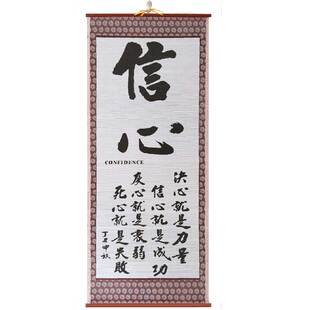 信
心
CONFIDENCE
决心就是力量
信心就是成功
灰心就是衰弱
死心就是失败